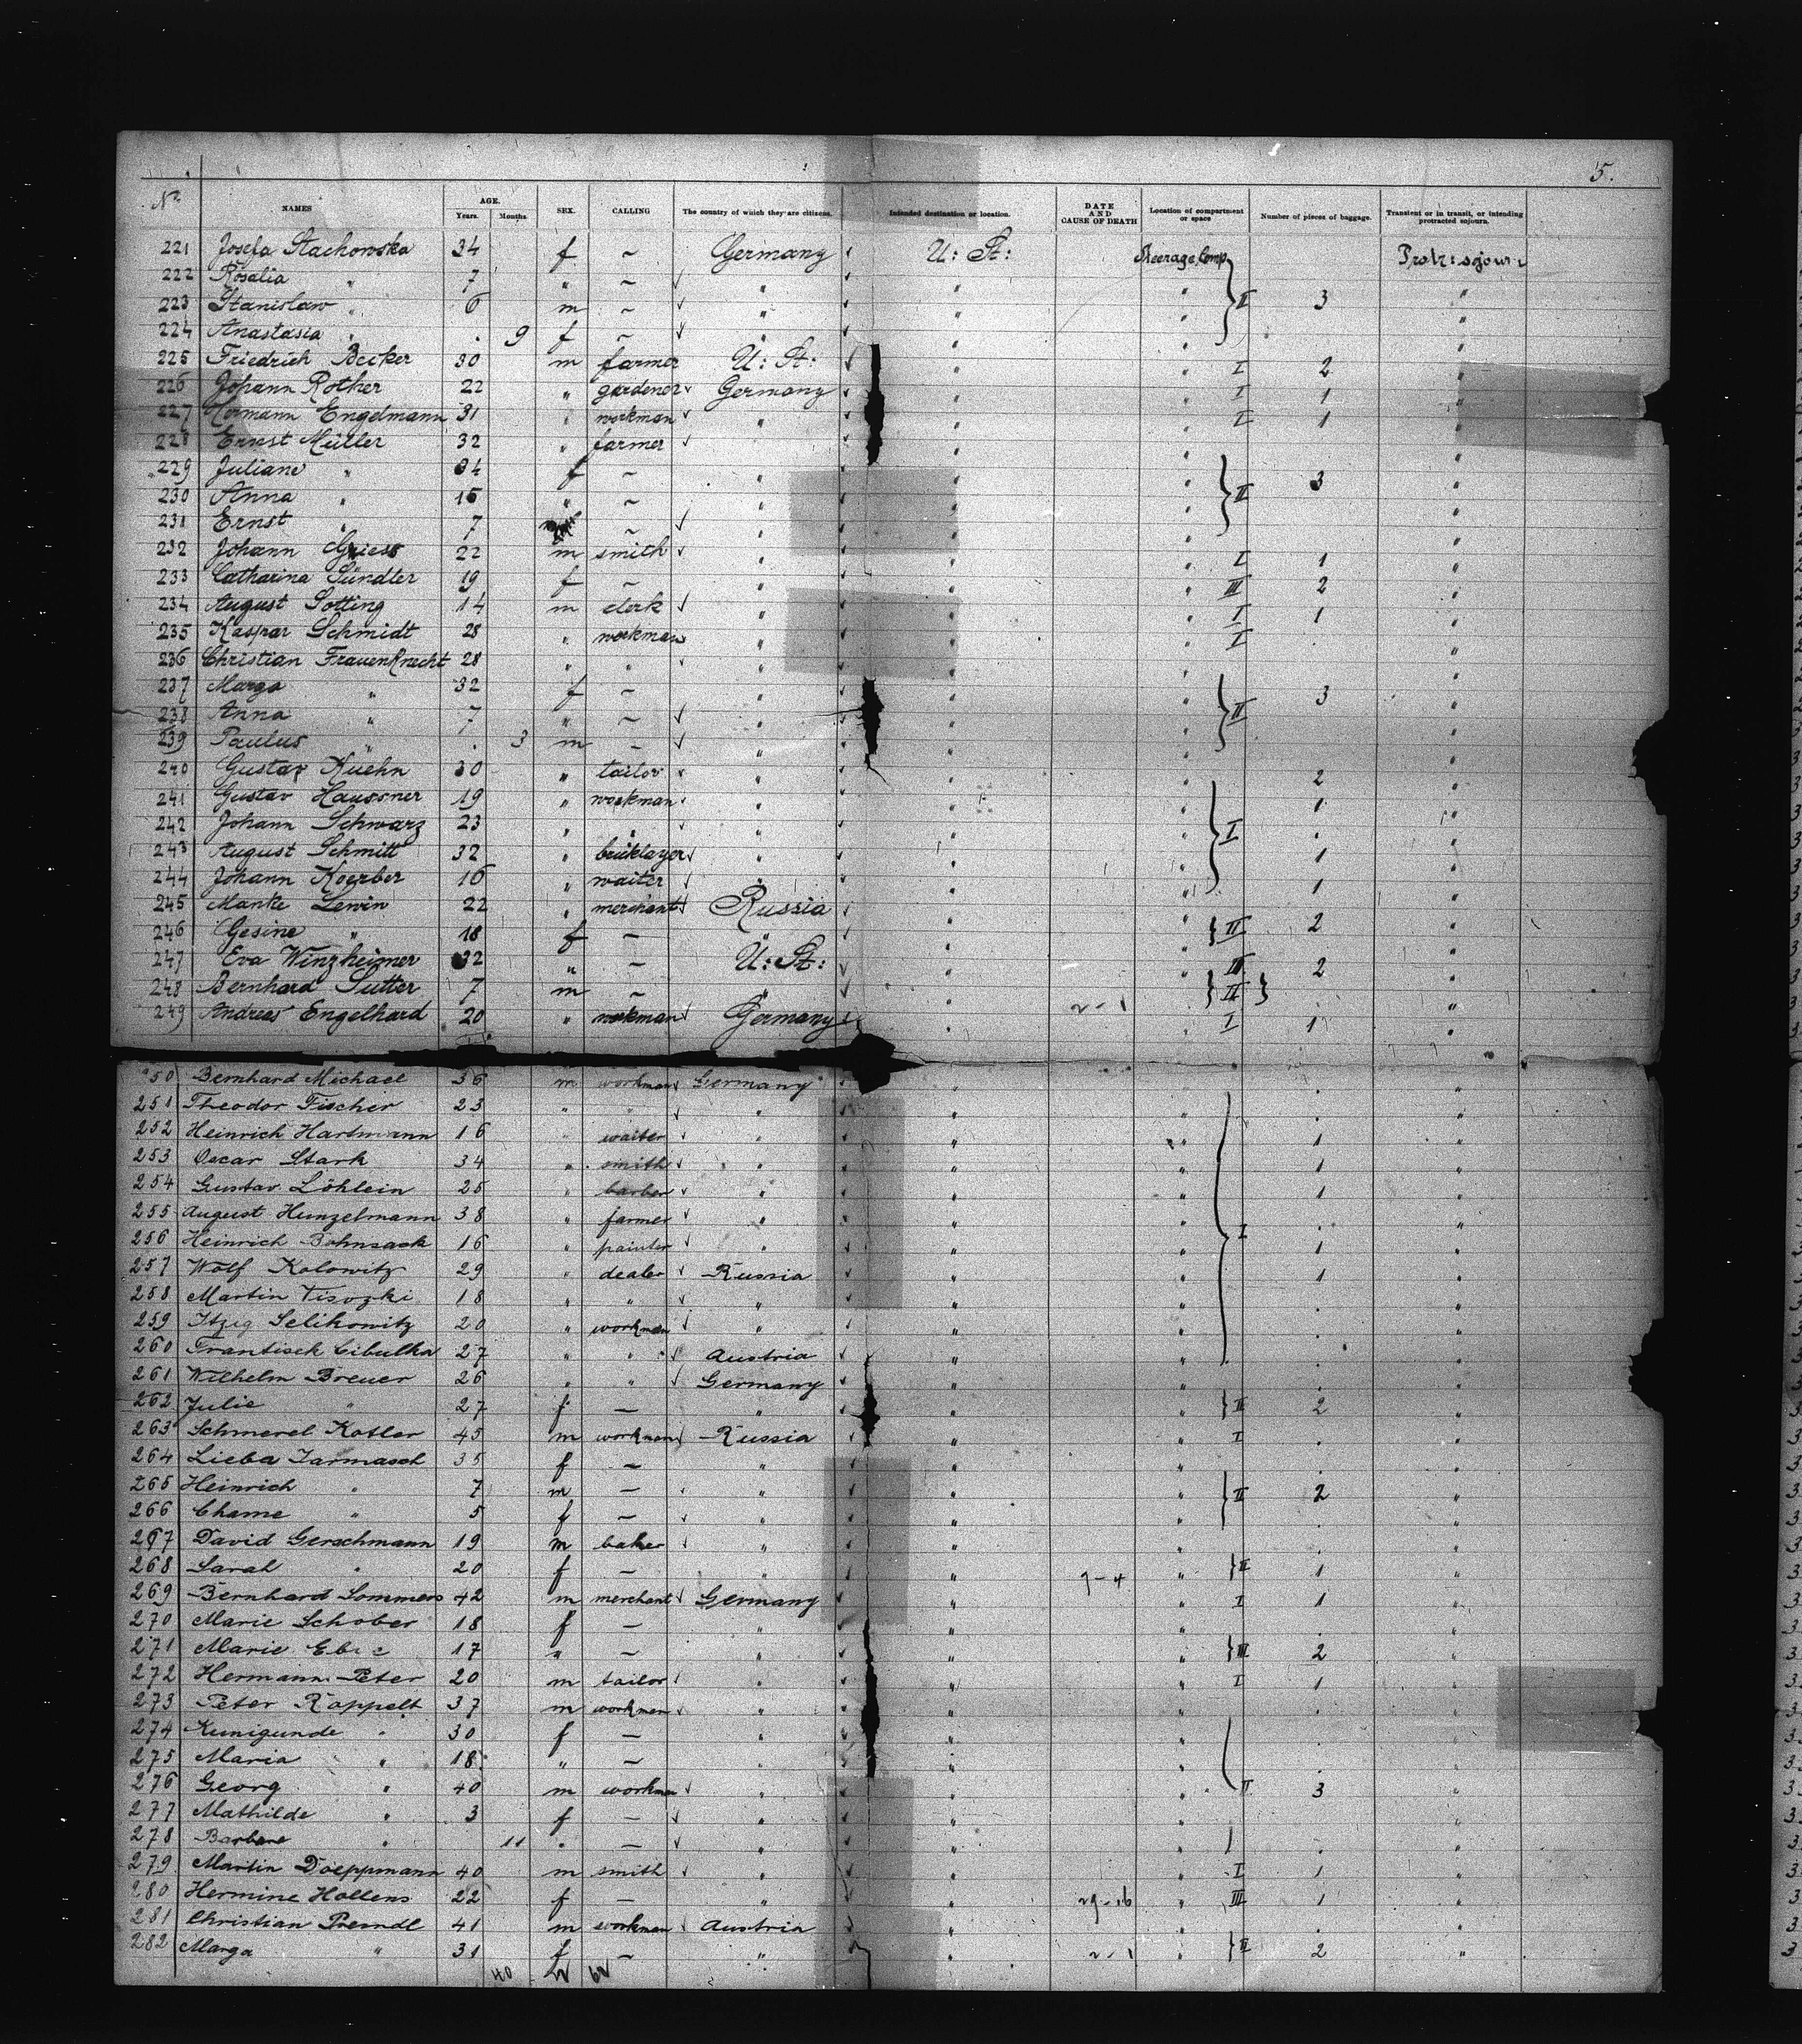 5.
No NAMES AGE. Years. Months. SEX. CALLING The country of which they are citizens. Intended destination or location. DATE AND CAUSE OF DEATH Location of compartment or space Number of pieces of baggage. Transient or in transit, or intending protracted sojourn.
221 Josefa Stachowska 34 f ~ Germany U: St: Steerage Comp Protr: sojour
222 Rosalia " 7 " ~ " " " "
223 Stanislaw " 6 m ~ " " " II 3 "
224 Anastasia " . 9 f ~ " " " "
225 Friedrich Becker 30 m farmer U: St: " " I 2 "
226 Johann Rother 22 " gardener Germany " " I 1 "
227 Hermann Engelmann 31 " workman " " " I 1 "
228 Ernst Müller 32 " farmer " " " "
229 Juliane " 34 f ~ " " " 3 "
230 Anna " 16 " ~ " " " II "
231 Ernst " 7 ~ " " " "
232 Johann Griess 22 m smith " " " I 1 "
233 Catharina Sündter 19 f ~ " " " III 2 "
234 August Sotting 14 m clerk " " " I 1 "
235 Kaspar Schmidt 28 " workman " " " I . "
236 Christian Frauenknecht 28 " " " " " "
237 Marga " 32 f ~ " " " 3 "
238 Anna " 7 " ~ " " " II "
239 Paulus " . 3 m ~ " " " "
240 Gustav Kuehn 30 " tailor " " " 2 "
241 Gustav Haussner 19 " workman " " " 1 "
242 Johann Schwarz 23 " " " " " I . "
243 August Schmitt 32 " bricklayer " " " 1 "
244 Johann Koerber 16 " waiter " " " 1 "
245 Manke Lewin 22 " merchant Russia " " "
246 Gesine " 18 f ~ " " " II 2 "
247 Eva Winzheimer 32 " ~ U: St: " " III 2 "
248 Bernhard Sutter 7 m ~ " " " II "
249 Andreas Engelhard 20 " workman Germany " " I 1 "
250 Bernhard Michael 36 m workman Germany " " . "
251 Theodor Fischer 23 " " " " " . "
252 Heinrich Hartmann 16 " waiter " " " 1 "
253 Oscar Stark 34 " smith " " " 1 "
254 Gustav Löhlein 25 " barber " " " 1 "
255 August Hunzelmann 38 " farmer " " " I . "
256 Heinrich Bohnsack 16 " painter " " " 1 "
257 Wolf Kolowitz 29 " dealer Russia " " 1 "
258 Martin Visozki 18 " " " " " . "
259 Itzig Selikowitz 20 " workman " " " . "
260 Frantisek Cibulka 27 " " Austria " " . "
261 Wilhelm Breuer 26 " " Germany " " . "
262 Julie " 27 f — " " " II 2 "
263 Schmerel Kotler 45 m workman Russia " " I . "
264 Lieba Jarmasch 35 f — " " " . "
265 Heinrich " 7 m — " " " II 2 "
266 Chame " 5 f — " " " . "
267 David Gerschmann 19 m baker " " " . "
268 Sarah " 20 f — " " 9-4 " II 1 "
269 Bernhard Sommers 42 m merchant Germany " " I 1 "
270 Marie Schober 18 f — " " " . "
271 Marie 17 " — " " " III 2 "
272 Hermann Peter 20 m tailor " " " I 1 "
273 Peter Rappelt 37 m workman " " " . "
274 Kunigunde " 30 f — " " " . "
275 Maria " 18 " — " " " . "
276 Georg " 40 m workman " " " II 3 "
277 Mathilde " 3 f — " " " . "
278 Barbara " 11 " — " " " . "
279 Martin Doeppmann 40 m smith " " " I 1 "
280 Hermine Hollens 22 f — " " 29-16 " III 1 "
281 Christian Preundl 41 m workman Austria " " . "
282 Marga " 31 f — " " 2-1 " II 2 "
40